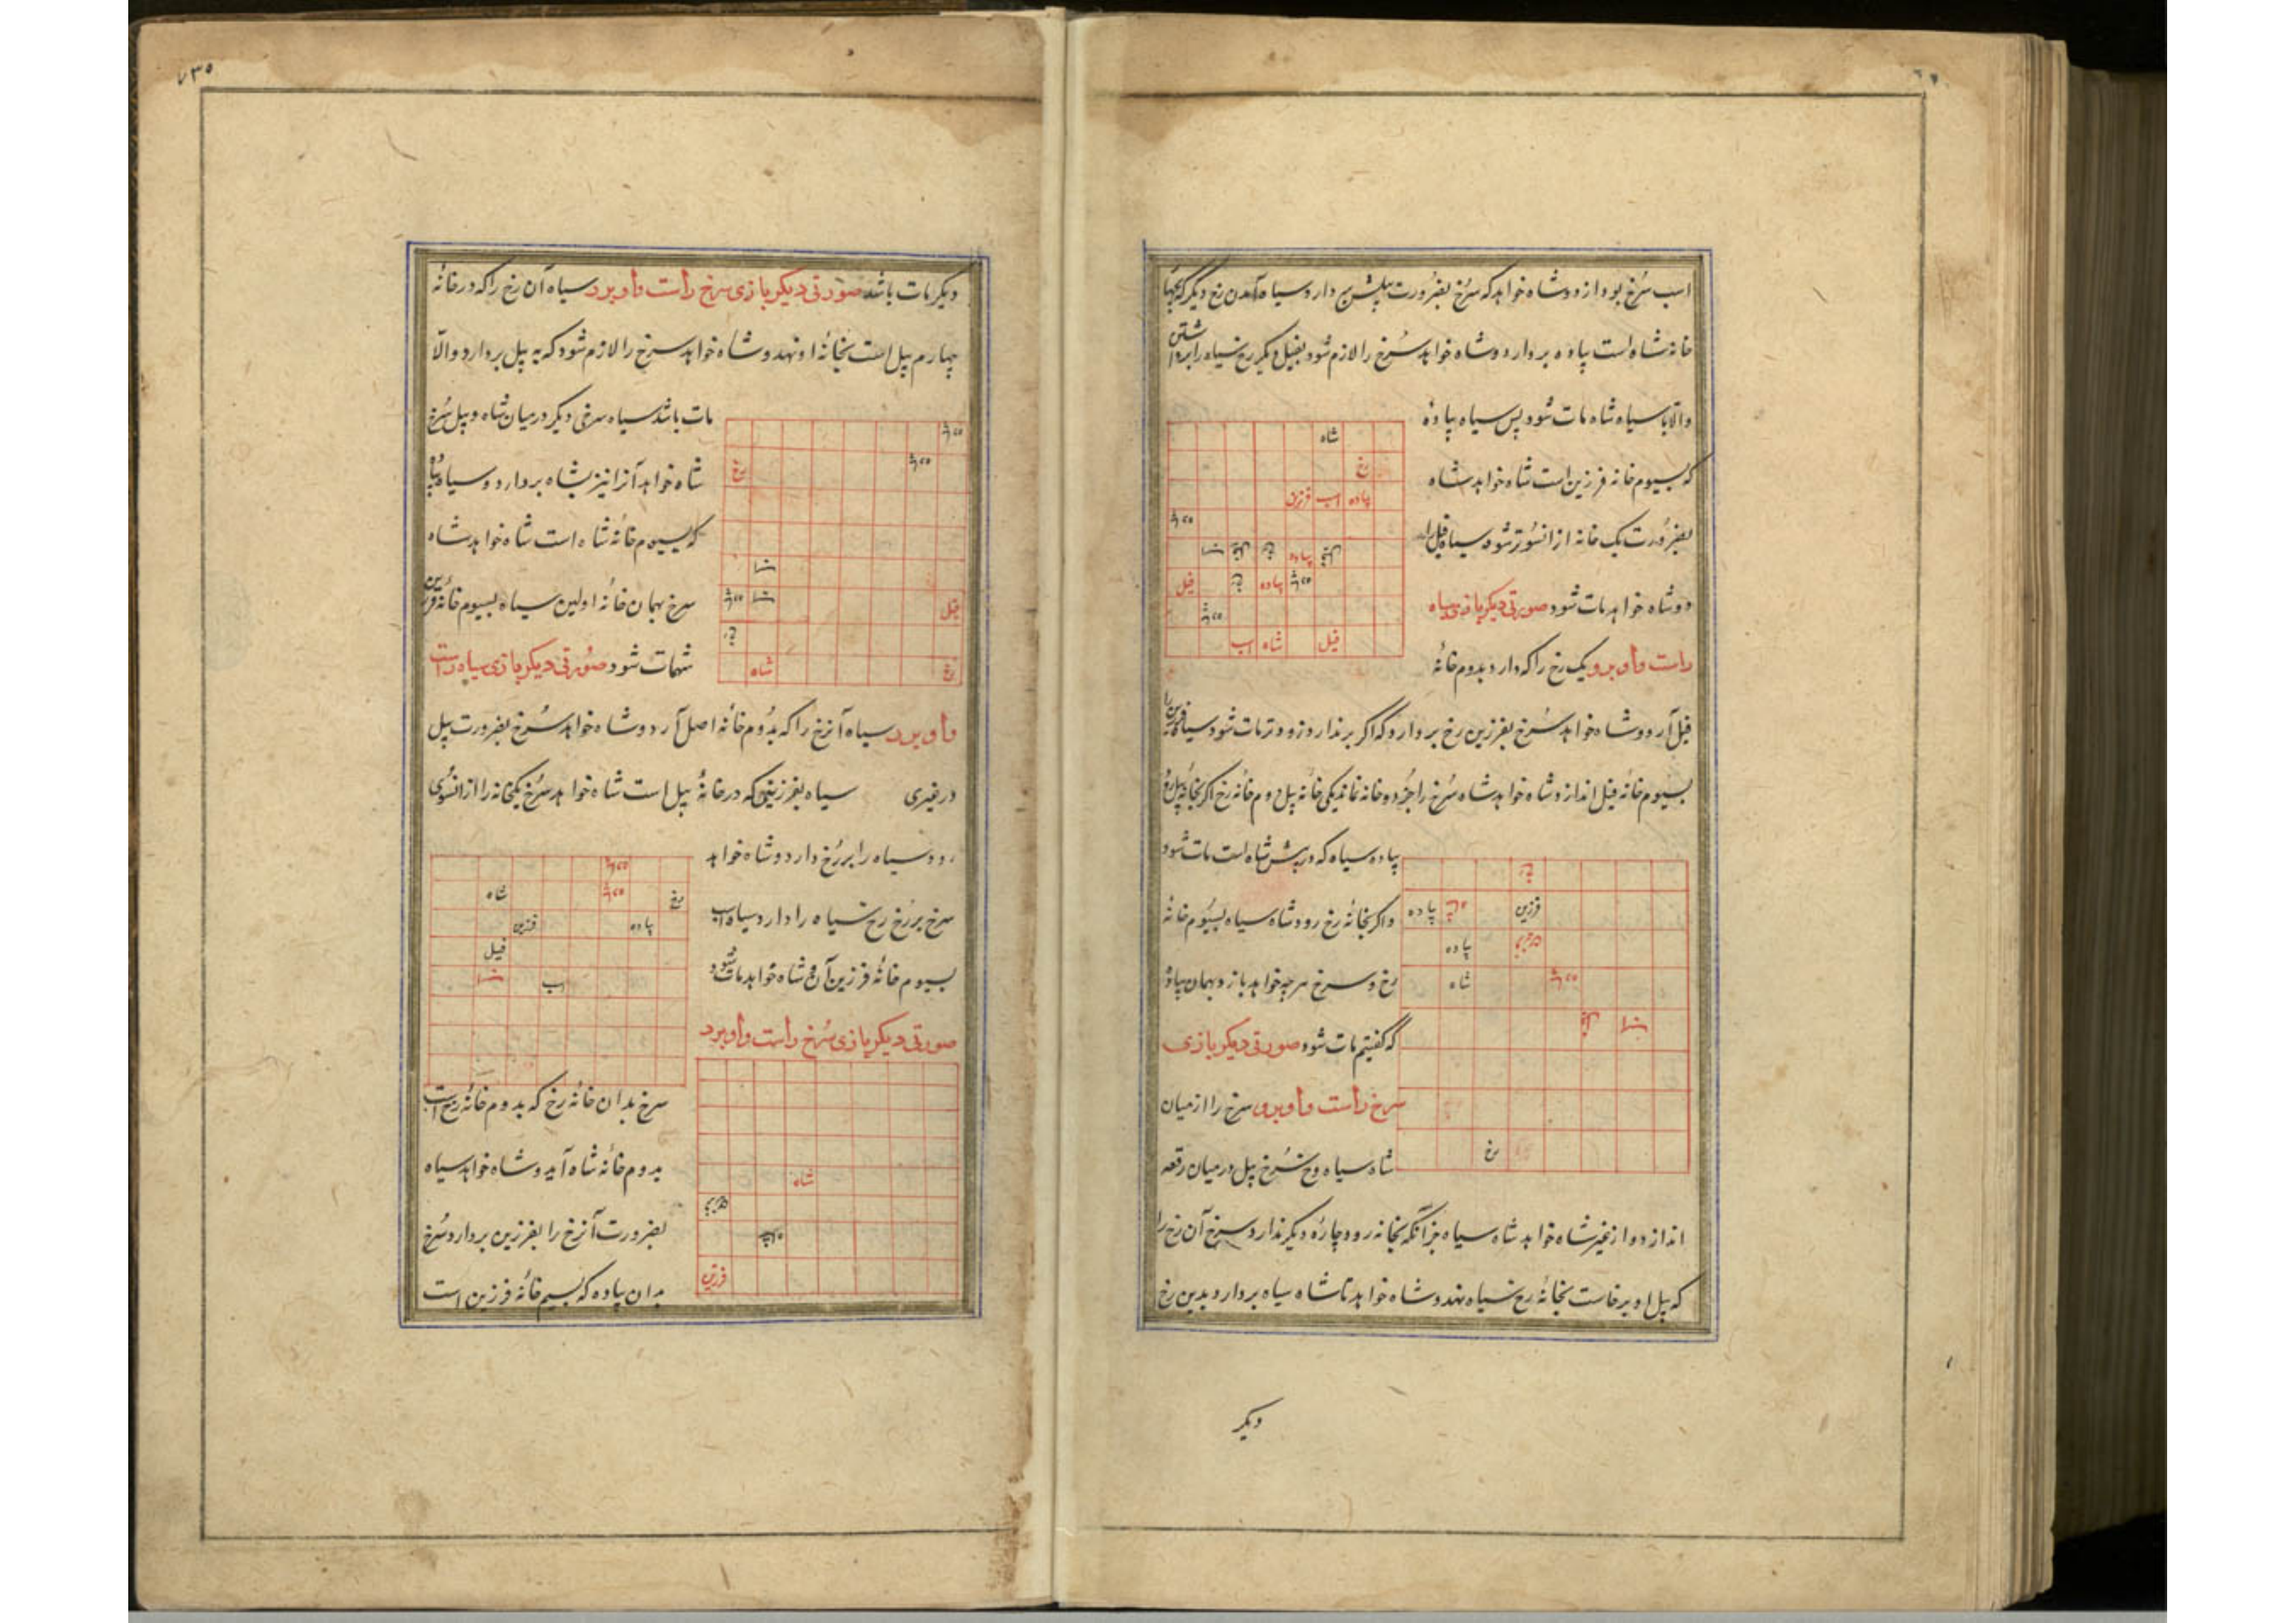 اسب سرخ بود از دو شاه خواهد که سرخ بضرورت دارد و سیاه آمدن رخ دیگر
خانه شاه است پیاده بردارد و شاه خواهد سرخ را لازم شود بفیل دیگر رخ سیاه را برداشتن
والا با سیاه شاه مات شود پس سیاه پیاده
که بسیوم خانه فرزین است شاه خواهد شاه
بضرورت یک خانه از انسو تر شود سیاه فیل
و شاه خواهد مات شود صورتی دیگر بازی سیاه
راست و او برد یک رخ را که دارد بدوم خانه
فیل آرد و شاه خواهد سرخ بفرزین رخ بردارد که اگر برندارد زودتر مات شود سیاه
بسیوم خانه فیل اندازد شاه خواهد شاه سرخ را جز دو خانه نماند یکی خانه پیل دوم خانه رخ اگر بخانه پیل رود
پیاده سیاه که در پیش شاه است مات شود
و اگر بخانه رخ رود شاه سیاه بسیوم خانه
رخ و سرخ هرچه خواهد بازد بهمان پیاده
که گفتیم مات شود صورتی دیگر بازی
سرخ راست و او برد سرخ را از میان
شاه سیاه و رخ سرخ پیل در میان رقعه
اندازد و از غیر شاه خواهد شاه سیاه جز آنکه بخانه رود چاره دیگر ندارد سرخ آن رخ را
که پیل او برخاست بخانه رخ سیاه نهد و شاه خواهد تا شاه سیاه بردارد بدین رخ
شاه
رخ
پیاده اسب فرزین
پیاده
پیاده فیل
فیل شاه اسب
فرزین پیاده
پیاده
شاه
رخ
دیگر
۷۳۵
دیگر مات باشد صورتی دیگر بازی سرخ راست و او برد سیاه آن رخ را که در خانه
چهارم پیل است بخانه او نهد و شاه خواهد سرخ را لازم شود که به پیل بردارد والا
مات باشد سیاه سرخی دیگر در میان شاه و پیل سرخ
شاه خواهد آنرا نیز بشاه بردارد و سیاه
که بسیوم خانه شاه است شاه خواهد شاه
سرخ بهمان خانه اولین سیاه بسیوم خانه فرزین
شهمات شود صورتی دیگر بازی سیاه راست
و او برد سیاه آنرخ را که بدوم خانه اصل آرد و شاه خواهد سرخ بضرورت پیل
در غیری سیاه بفرزینی که در خانه پیل است شاه خواهد سرخ یکخانه را از انسوی
رود سیاه را بر رخ دارد و شاه خواهد
سرخ بر رخ رخ سیاه را دارد سیاه اسب
بسیوم خانه فرزین شاه خواهد مات شود
صورتی دیگر بازی سرخ راست و او برد
سرخ بدان خانه رخ که بدوم خانه رخ است
بدوم خانه شاه آید و شاه خواهد سیاه
بضرورت آنرخ را بفرزین بردارد و سرخ
بدان پیاده که بسیم خانه فرزین است
رخ
فیل
شاه رخ
شاه رخ
فرزین پیاده
فیل
اسب
شاه
فرزین